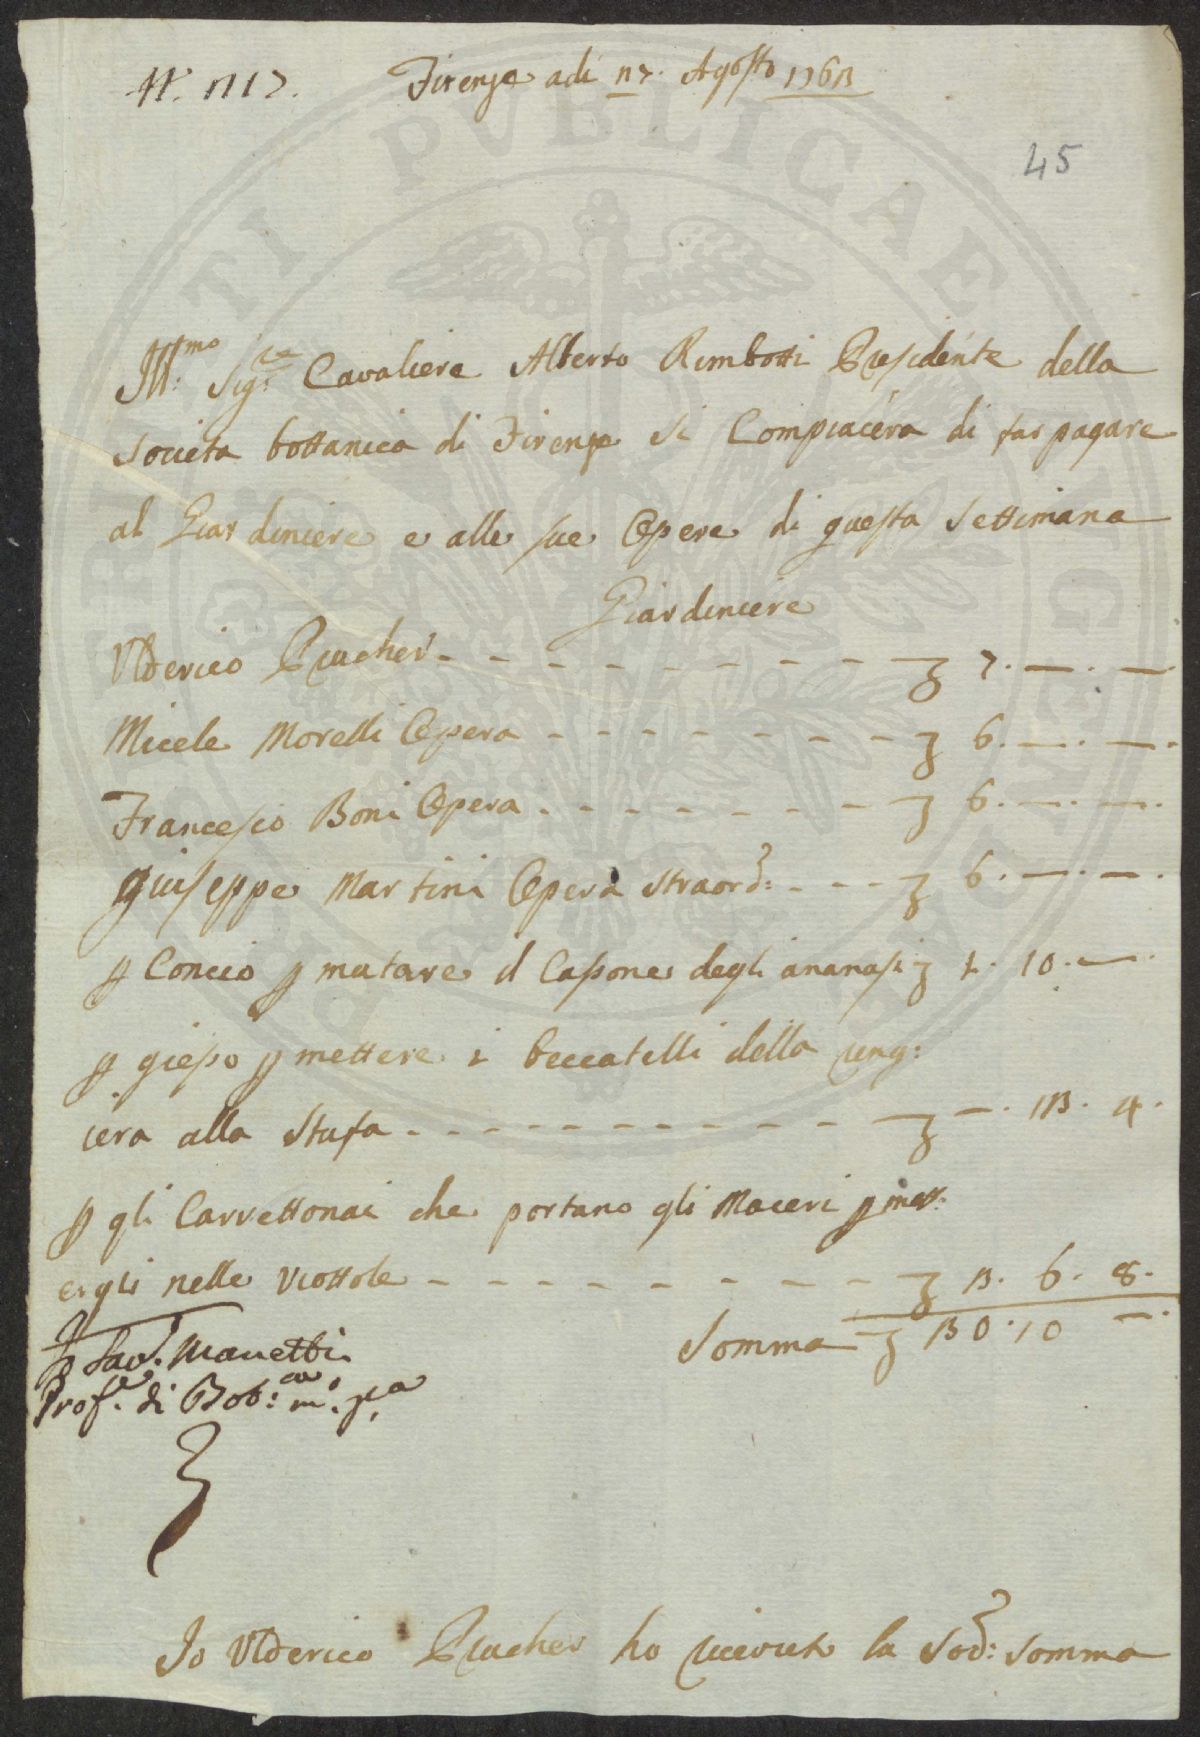 N. 217. Firenze adi 27. Agosto 1763
45
PROSPERITATI PVBLICAE AVGENDAE
Ill:mo Sig:re Cavaliere Alberto Rimbotti Presidente della
Societa bottanica di Firenze si Compiacera di far pagare
al Giardiniere e alle sue Opere di questa Settimana
Giardiniere
Ulderico Prucher - - - - - - - - - - £ 7. — . —
Micele Morelli Opera - - - - - - - - - £ 6. — . — .
Francesco Boni Opera . - - - - - - - £ 6. — . — .
Giuseppe Martini Opera straord: - - - - £ 6. — . — .
p Concio p mutare il Casone degli ananasi £ 1. 10. — .
p gieso p mettere i beccatelli della ung:
iera alla Stufa - - - - - - - - - - £ — . 13. 4.
p gli Carrettonai che portano gli Maceri p mett:
ergli nelle viottole - - - - - - - - - £ 3. 6. 8.
Somma £ 30. 10 — .
Sav. Manetti
Prof.e di Bot:ca m. p.a
Io Ulderico Prucher ho riceuto la Sod: Somma